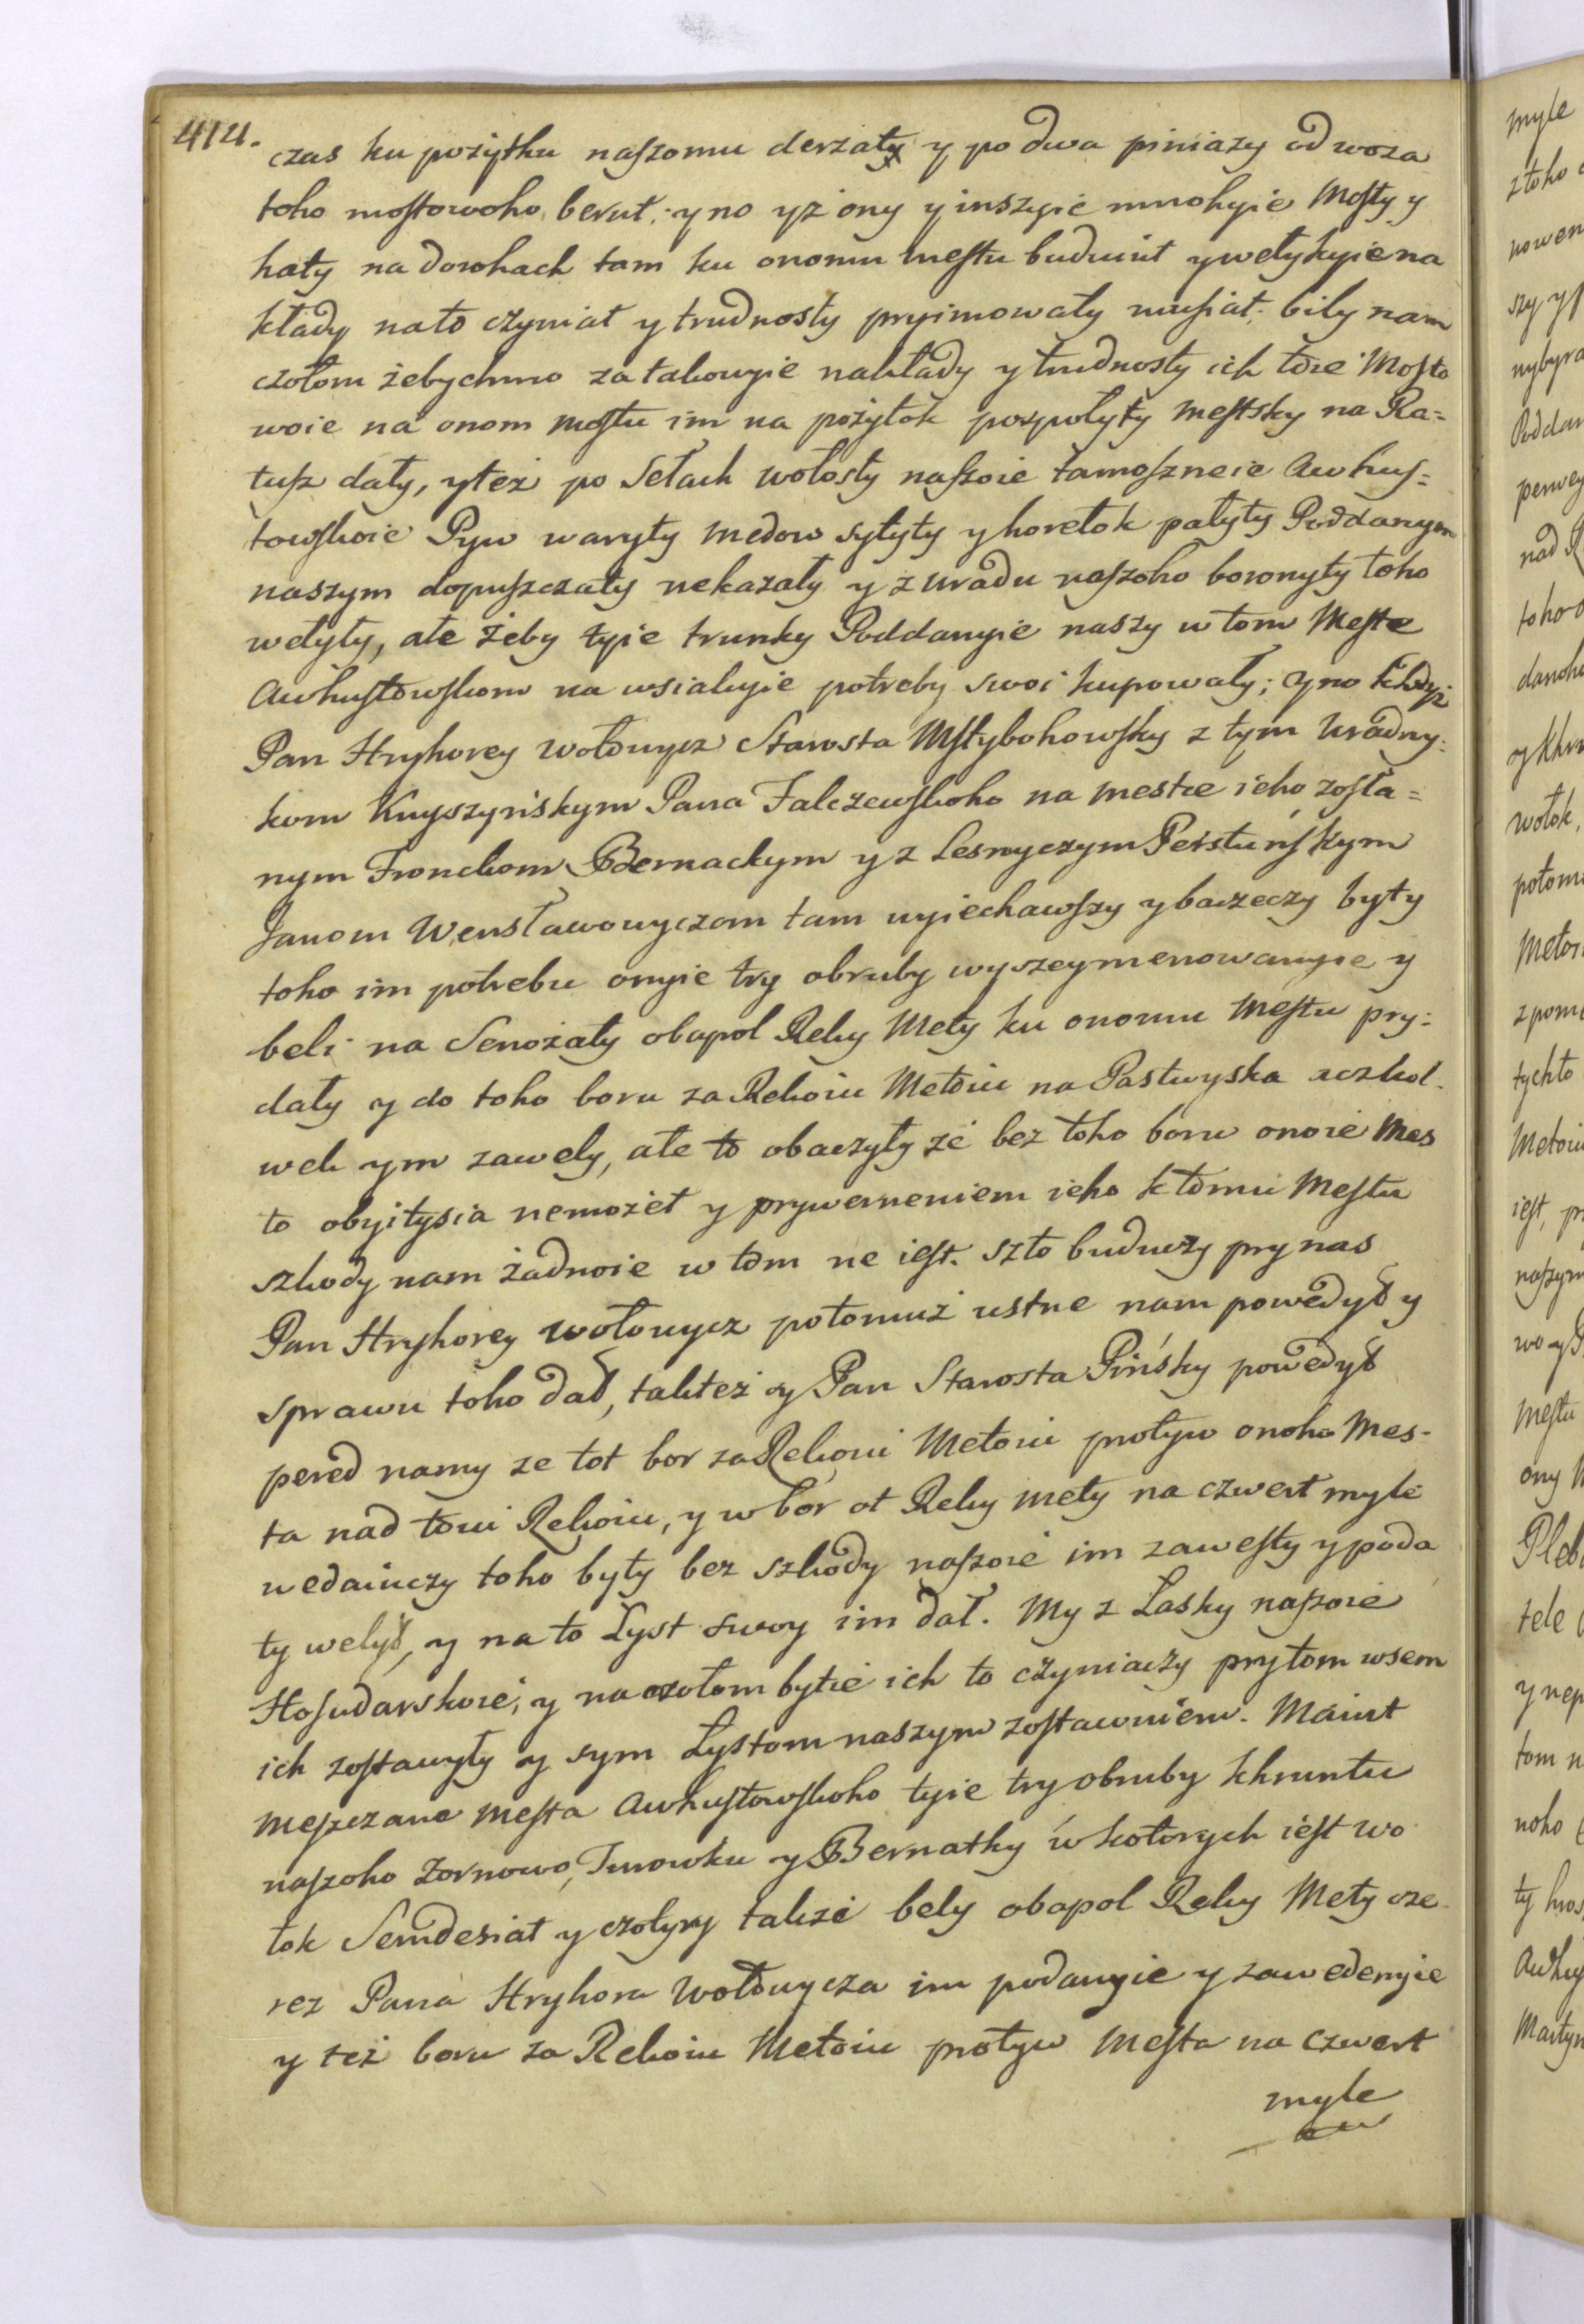 414.
czas ku pożytku naszomu derzaty y po dwa piniazy od woza
toho mostowoho berut: y no yż ony y inszyie mnohyie Mosty y
haty na dorohach tam ku onomu Mestu buduiut y wełykyie na
kłady na to czyniat y trudnosty pryimowaty musiat. bily nam
czołom żebychmo za takowyie nakłady y trudnosty ich toie Mosto
woie na onom Mostu im na pożytok pospołyty Mestsky na Ra=
tusz dały, y też po Sełach wołosty naszoie tamoszneie Awhus=
towskoie Pyw waryty Medow sytyty y horełok pałyty Poddanym
naszym dopuszczaty nekazały y z uradu naszoho boronyty toho
wełyły, ałe żeby tyie trunky Poddanyie naszy w tom Meste
Awhustowskom na wsiakyie potreby swoi kupowały; y no khdyż
Pan Hryhorey Wołowycz Starosta Mstybohowsky z tym Uradny=
kom Knyszynskym Pana Falczewskoho na mestce ieho zosła=
nym Fronckom Bernackym y z Lesnyczym Perstuńskym
Janom Wensławowyczom tam uyiechawszy y baczeczy były
toho im potrebu onyie try obruby wyszeymenowanyie y
beli na Senożaty obapol Reky Mety ku onomu Mestu pry=
dały y do toho boru za Rekoiu Metoiu na Pastwyska aczkol
wek ym zawely, ałe to obaczyły że bez toho boru onoie Mes
to obyitysia nemożet y prywerneniem ieho k tomu Mestu
szkody nam żadnoie w tom ne iest. szto buduczy pry nas
Pan Hryhorey Wołowycz potomuż ustne nam powedył y
sprawu toho dał, takteż y Pan Starosta Pińsky powedył
pered namy że tot bor za Rekoiu Metoiu protyw onoho Mes-
ta nad toiu Rekoiu, y w bor ot Reky Mety na czwert myle
wedaiuczy toho byty bez szkody naszoie im zawesty y poda
ty wełył, y na to Lyst swoy im dał. My z Łasky naszoie
Hosudarskoie, y na czołombytie ich to czyniaczy pry tom wsem
ich zostawyły y sym Lystom naszym zostawuiem. Maiut
Meszczane Mesta Awhustowskoho tyie try obruby khruntu
naszoho Żornowo, Turowku y Bernatky w kotorych iest wo
łok Semdesiat y czotyry także bely obapol Reky Mety cze
rez Pana Hryhora Wołowycza im podanyie y zawedenyie
y też boru za Rekoiu Metoiu protyw Mesta na czwert
myle